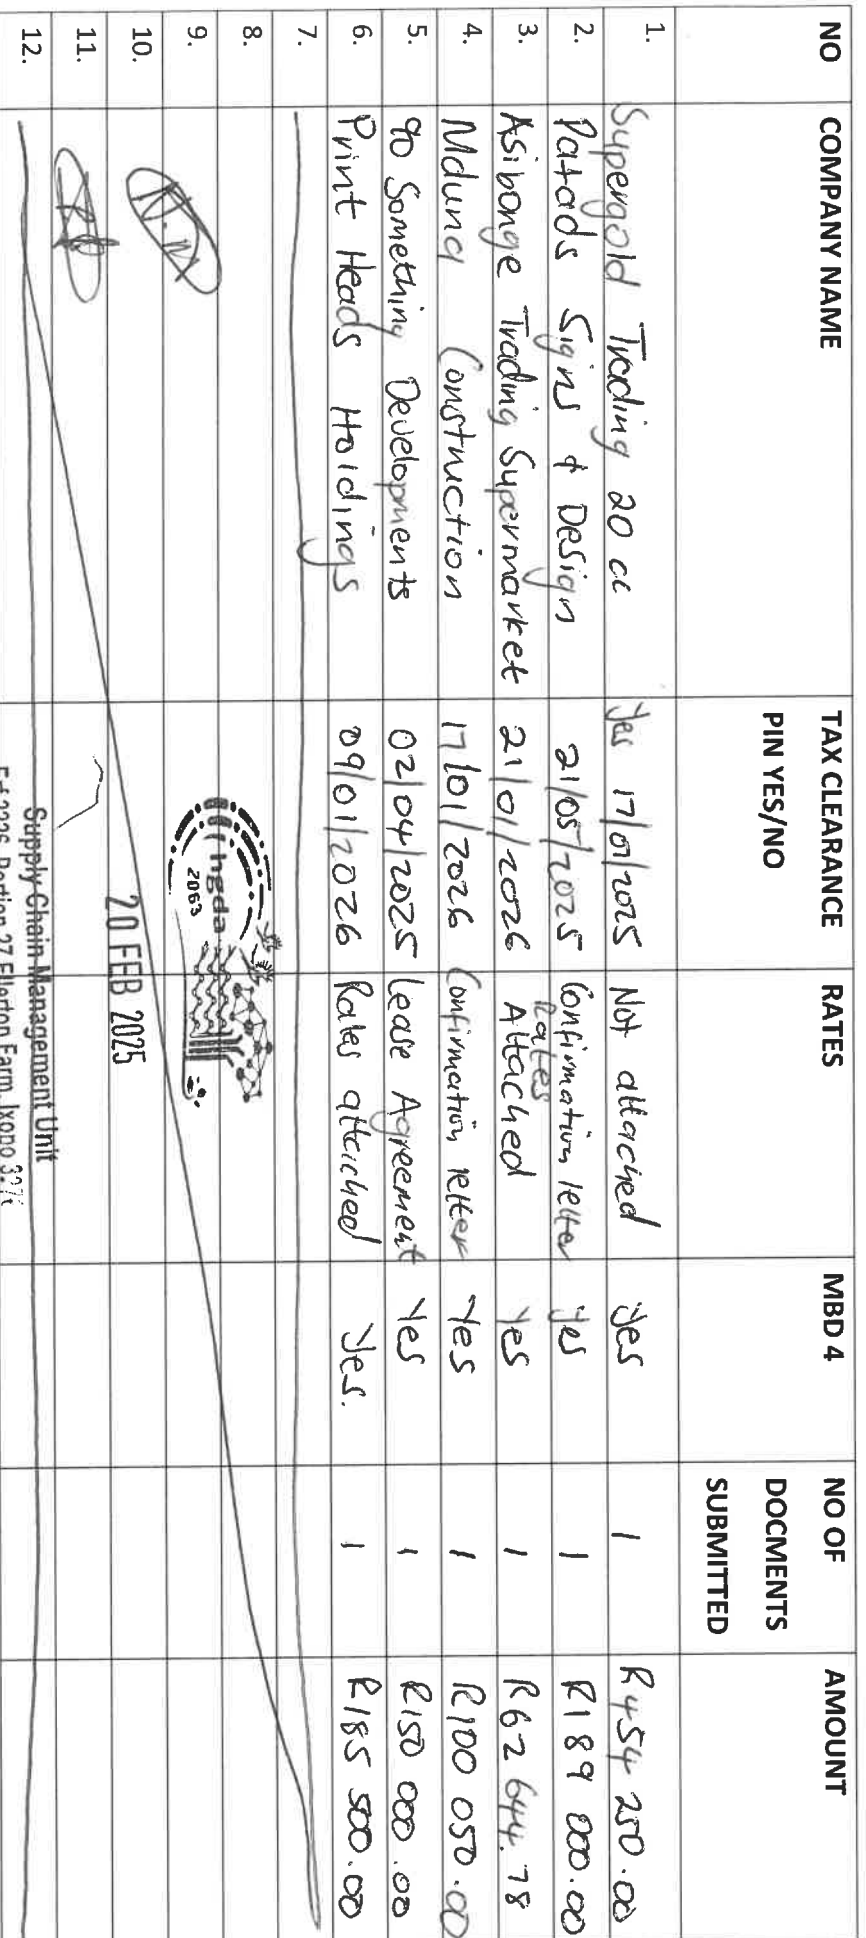 NO COMPANY NAME TAX CLEARANCE PIN YES/NO RATES MBD 4 NO OF DOCMENTS SUBMITTED AMOUNT
1. Supergold Trading 20 cc Yes 17/07/2025 Not attached Yes 1 R454 250.00
2. Patads Signs & Design 21/05/2025 Confirmation letter Yes 1 R189 000.00
3. Asibonge Trading Supermarket 21/01/2026 Rates Attached Yes 1 R62 644.78
4. Mduna Construction 17/01/2026 Confirmation letter Yes 1 R100 050.00
5. 90 Something Developments 02/04/2025 Lease Agreement Yes 1 R150 000.00
6. Print Heads Holdings 09/01/2026 Rates attached Yes. 1 R185 500.00
7.
8.
9. hgda
2063
10. 20 FEB 2025
11.
12. Supply Chain Management Unit
Portion 27 Ellerton Farm, Ixopo